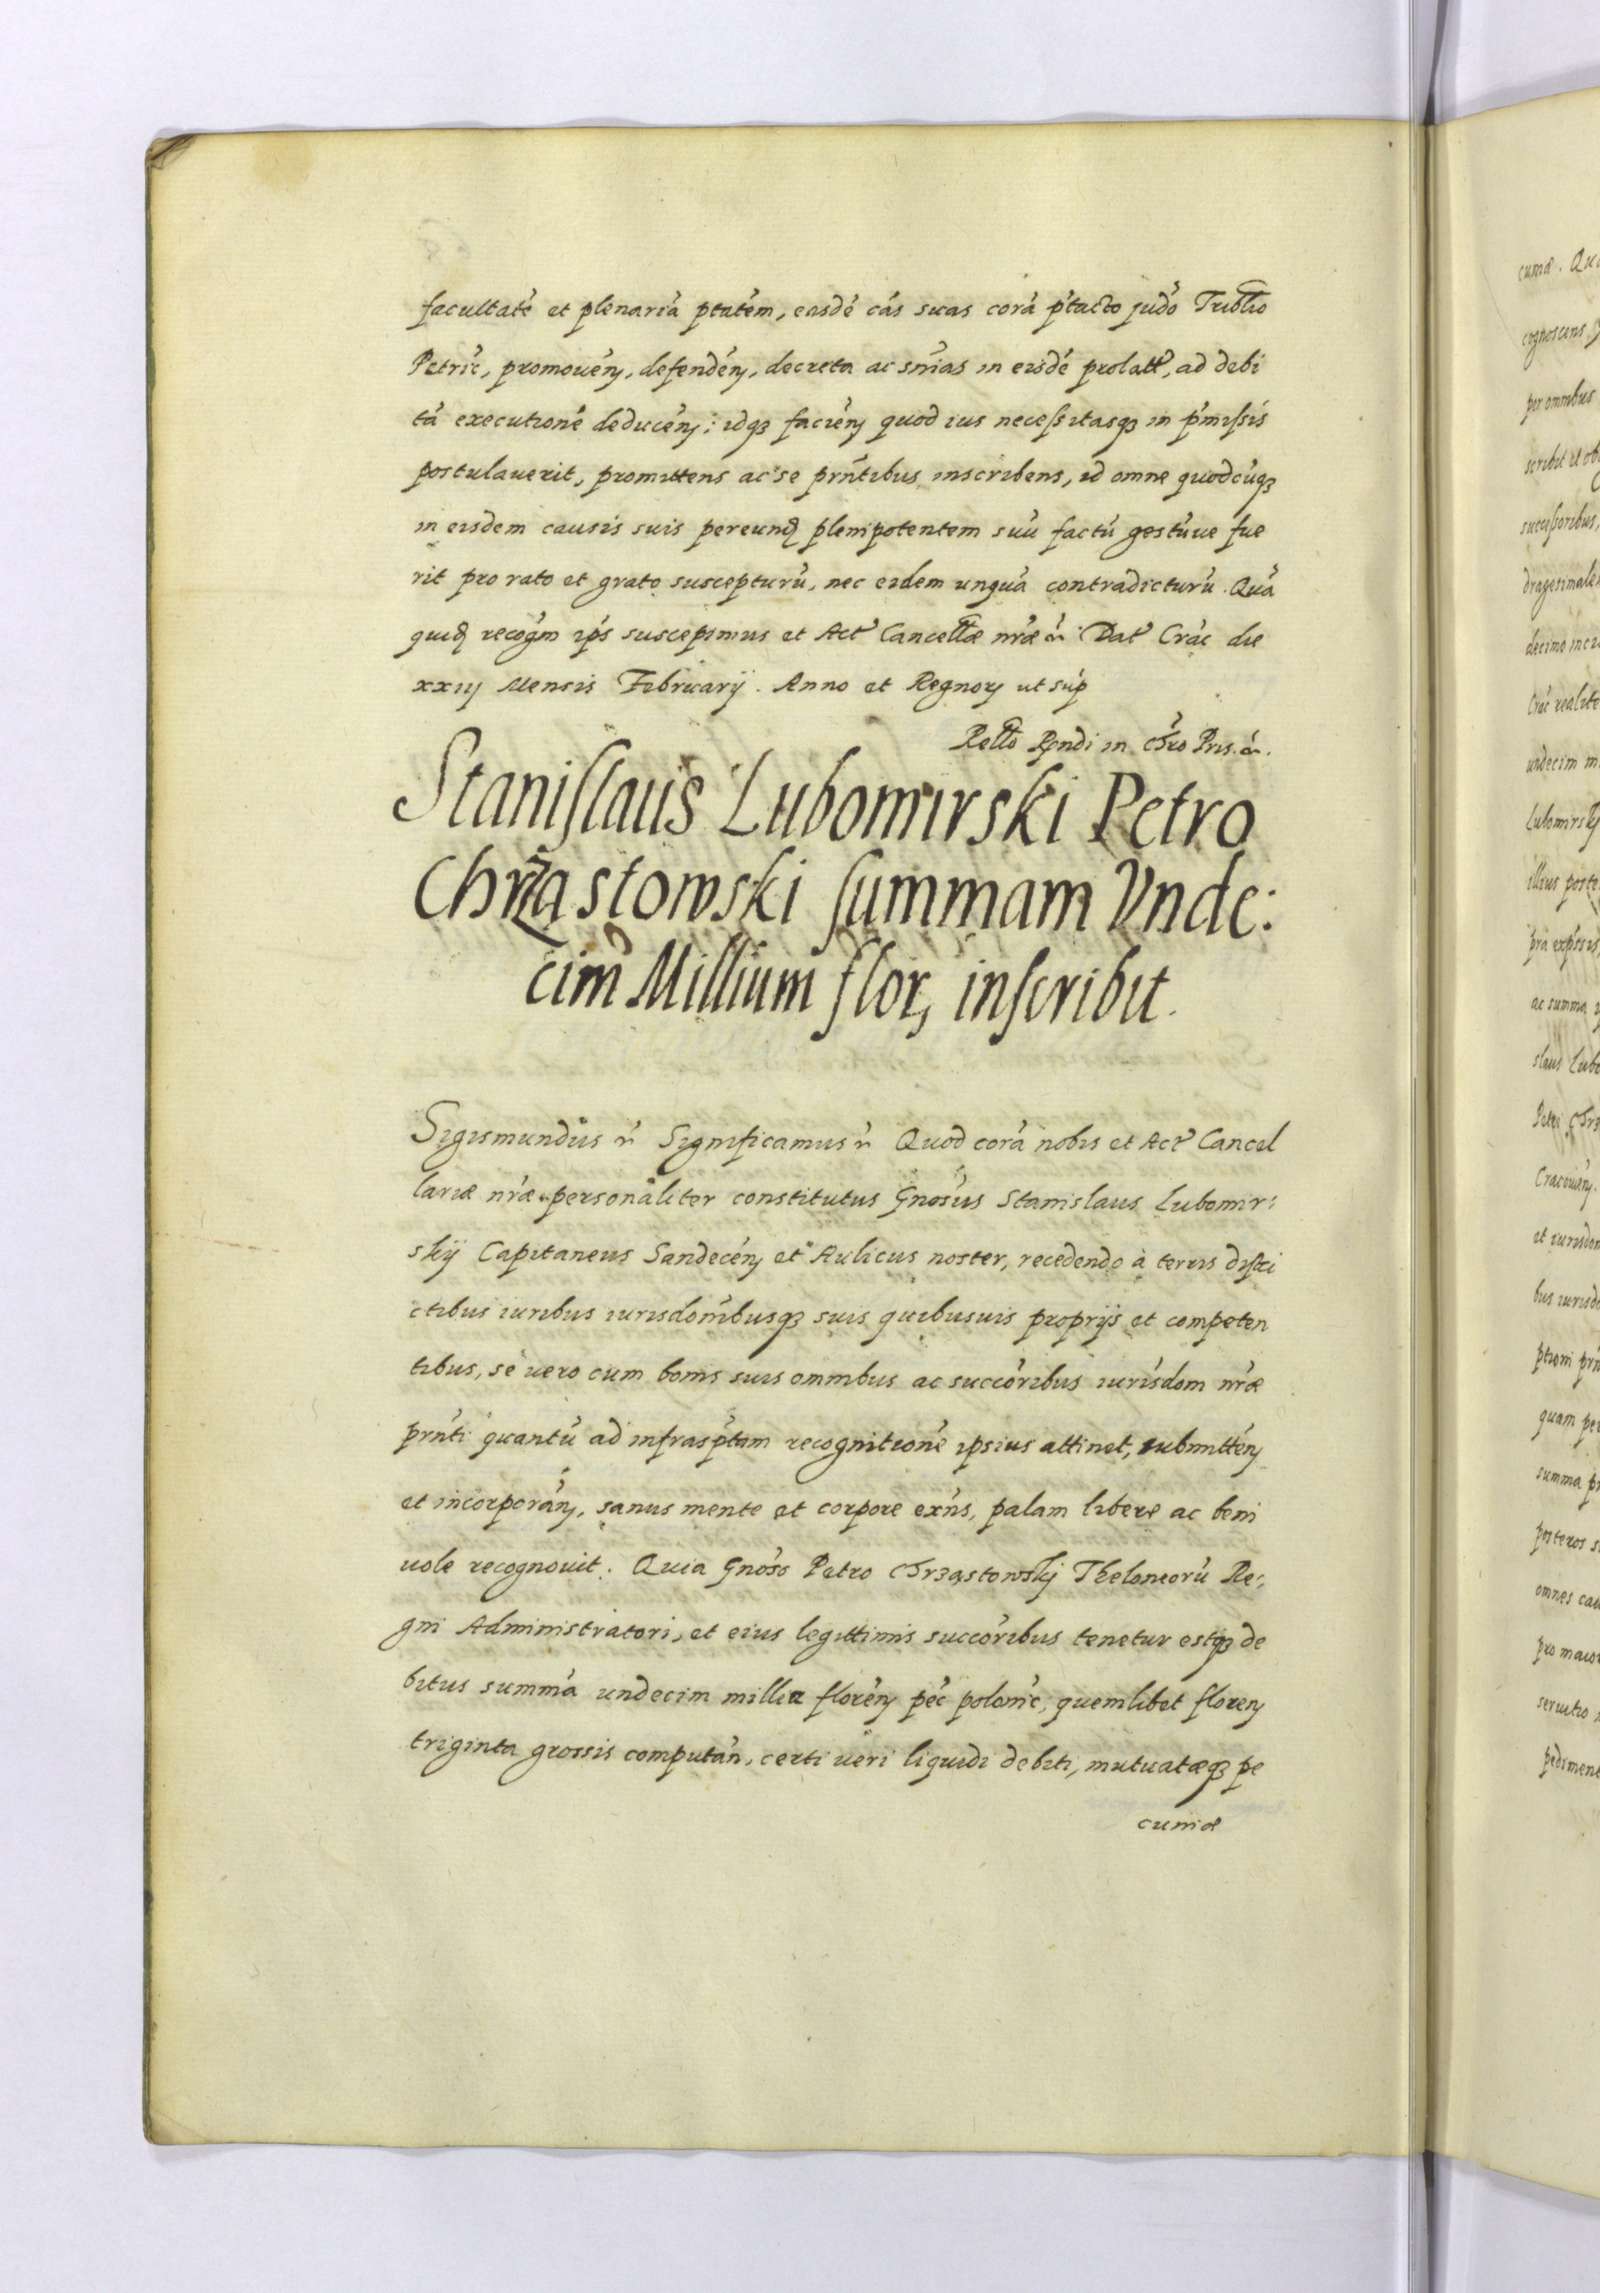 facultatē et plenariā ptatēm, easdē cās suas corā ptacto judo Tribllo
Petric, promoven, defenden, decreta ac snias in eisdē prolatt, ad debi
tā executionē deducen; idq3 facien quod ius necessitasq3 in pmissis
postulaverit, promittens ac se prntibus inscribens, id omne quodcūq3
in eisdem causis suis per eund plenipotentem suū factū gestūve fue
rit pro rato et grato suscepturū, nec eidem unquā contradicturū. Quā
quid recognm ips suscepimus et Act Cancellæ nræ &. Dat Crac die
xxiij Mensis Februarij. Anno et Regnor ut sup
Rello Rndi in Chro Pris. &.
Stanislaus Lubomirski Petro
Chrząstowski summam Vnde:
cim Millium flor, inscribit.
Sigismundus & Significamus & Quod corā nobis et Act Cancel
lariæ nræ personaliter constitutus Gnosus Stanislaus Lubomir:
skij Capitaneus Sandecen et Aulicus noster, recedendo à terris distri
ctibus iuribus iurisdonibusq3 suis quibusuis proprijs et competen
tibus, se vero cum bonis suis omnibus ac succoribus iurisdom nræ
prnti quantū ad infrasptam recognitionē ipsius attinet, submitten
et incorporan, sanus mente et corpore exns, palam libere ac beni
uole recognouit. Quia Gnoso Petro Chrząstowskij Theloneorū Re:
gni Administratori, et eius legittimis succoribus tenetur estq3 de
bitus summā undecim millia floren pec polonic, quemlibet floren
triginta grossis computan, certi veri liquidi debiti, mutuatæq3 pe
cuniæ
cumæ.
cognoscens
per omnibus
succissoribus,
decimo
undecim
illius
ac summa
Petri
quam
summa
posteros
omnes
pro